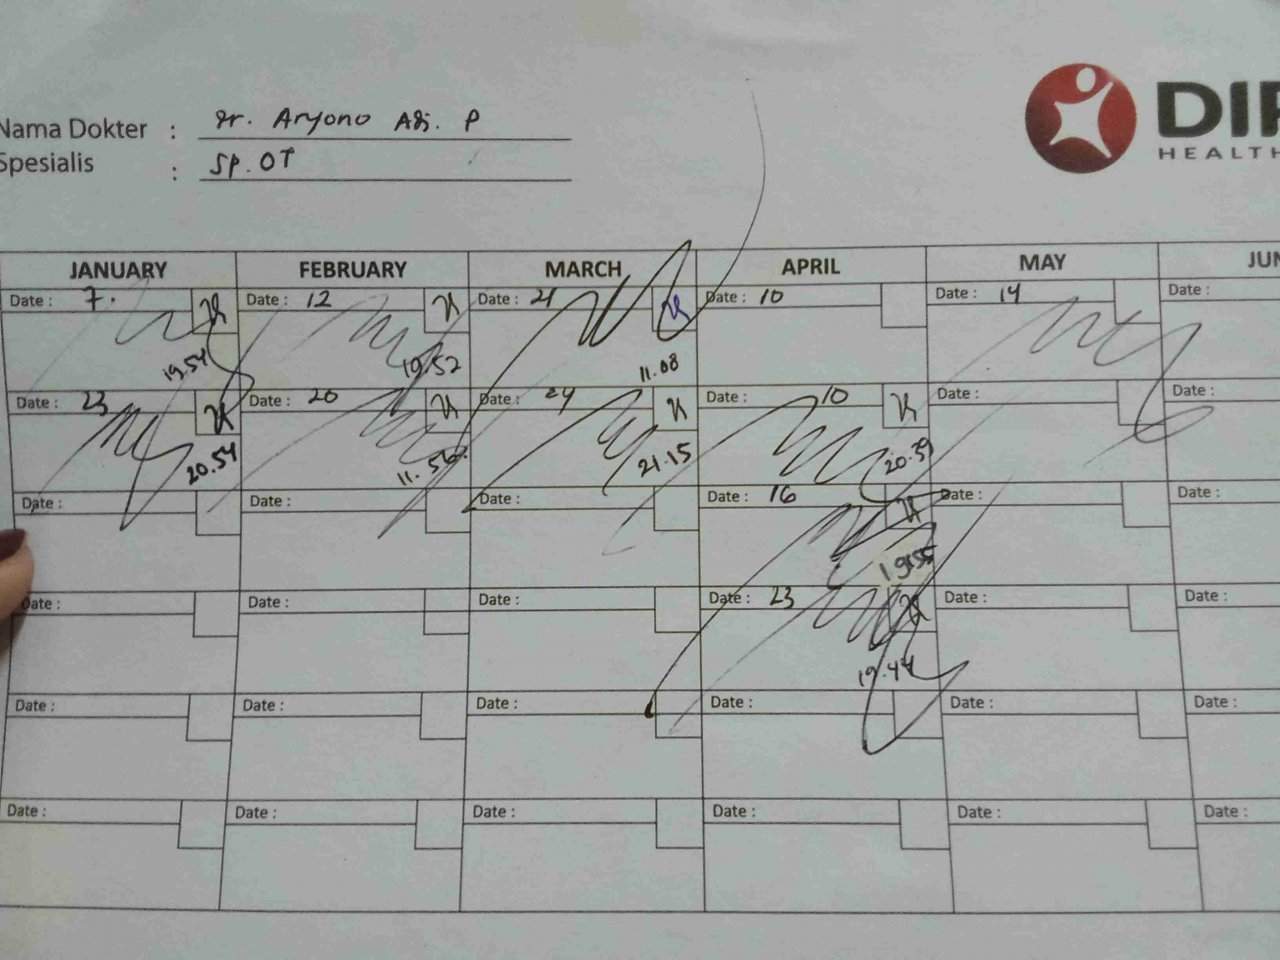 Nama Dokter : dr. Aryono Adi. P
Spesialis : Sp. OT
DIP
HEALTH
JANUARY FEBRUARY MARCH APRIL MAY JUN
Date : 7. Date : 12 Date : 21 Date : 10 Date : 14 Date :
19.54 19.52 11.08
Date : 23 Date : 20 Date : 24 Date : 10 Date : Date :
20.54 11.56 21.15 20.39
Date : Date : Date : Date : 16 Date : Date :
19.55
Date : Date : Date : Date : 23 Date : Date :
19.44
Date : Date : Date : Date : Date : Date :
Date : Date : Date : Date : Date : Date :